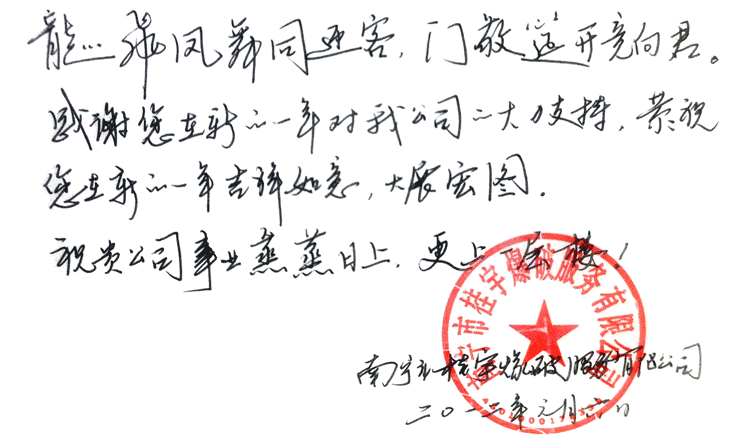 龍飛凤舞同迎客，门敞道开竟向君。
感谢您在新的一年对我公司的大力支持，恭祝
您在新的一年吉祥如意，大展宏图。
祝贵公司事业蒸蒸日上，更上一层楼！
南宁市桂宇爆破服务有限公司
南宁市桂宇爆破服务有限公司
二〇一二年元月六日